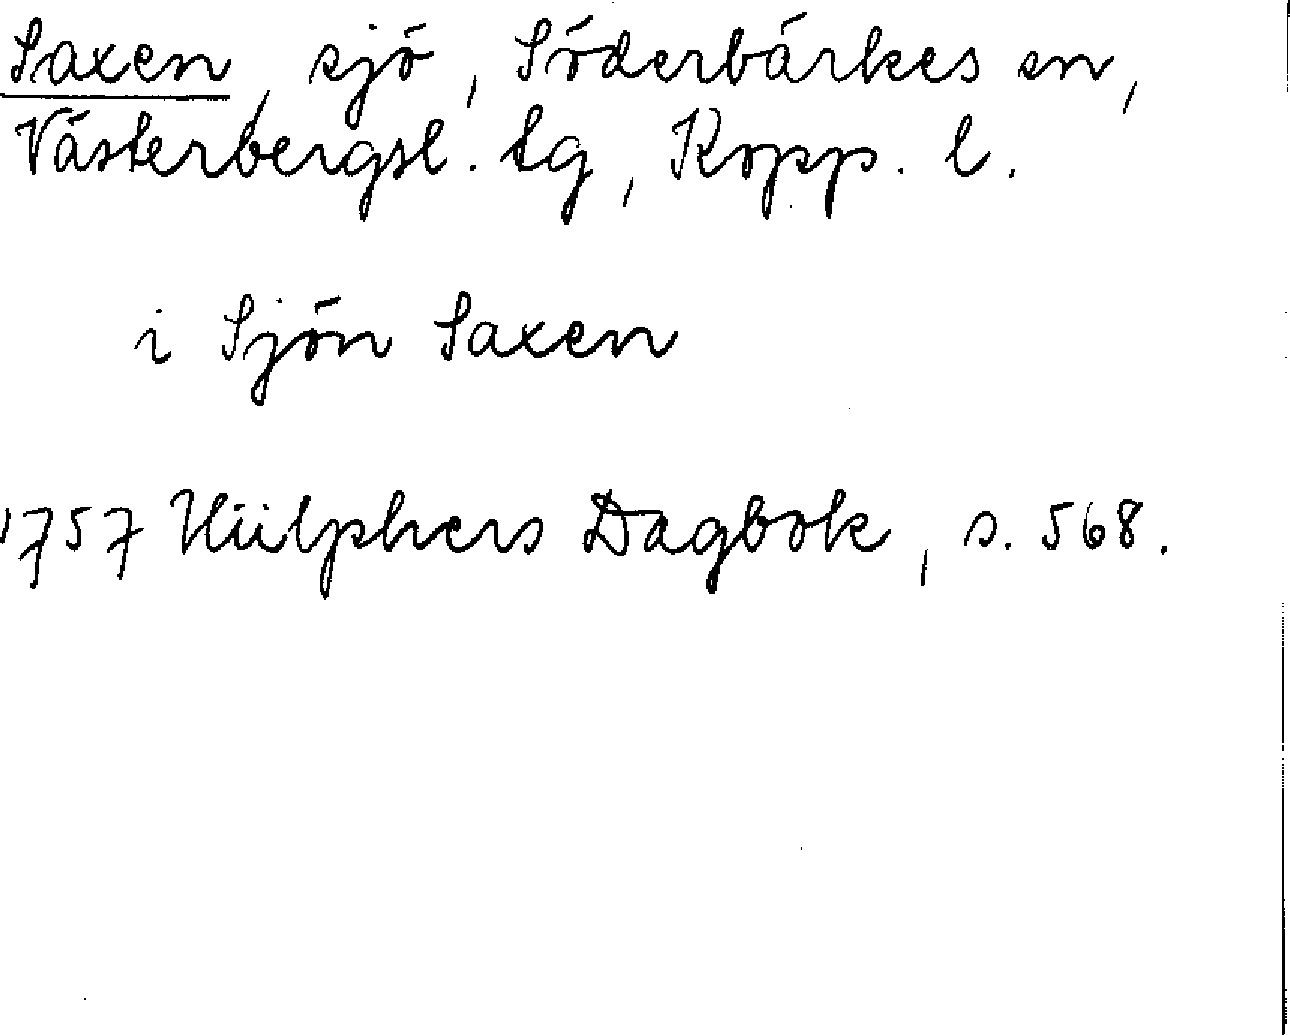 Saxen, sjö, Söderbärkes sn,
Västerbergsl. tg, Kopp. l.
i Sjön Saxen
1757 Hülphers Dagbok, s. 568.